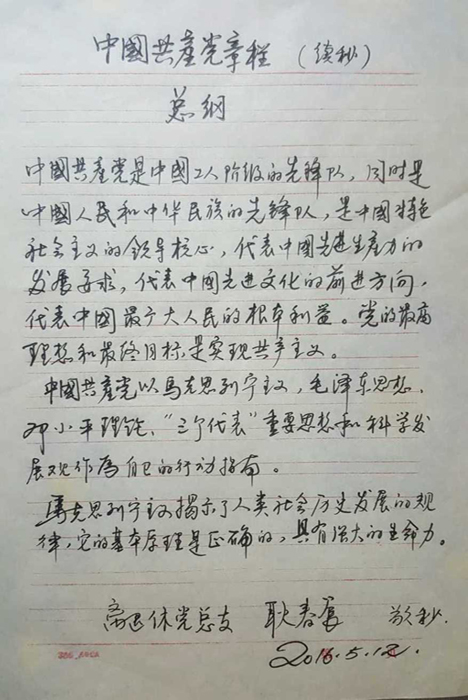 中國共產党章程（续抄）
总纲
中國共產党是中國工人阶级的先锋队，同时是
中國人民和中华民族的先锋队，是中國特色
社会主义的领导核心，代表中國先进生産力的
发展要求，代表中國先进文化的前进方向，
代表中國最广大人民的根本利益。党的最高
理想和最终目标是实现共产主义。
中國共產党以馬克思列宁主义，毛泽东思想、
邓小平理论、“三个代表”重要思想和科学发
展观作为自己的行动指南。
馬克思列宁主义揭示了人类社会历史发展的规
律，它的基本原理是正确的，具有强大的生命力。
离退休党总支 耿春 抄
2016.5.12